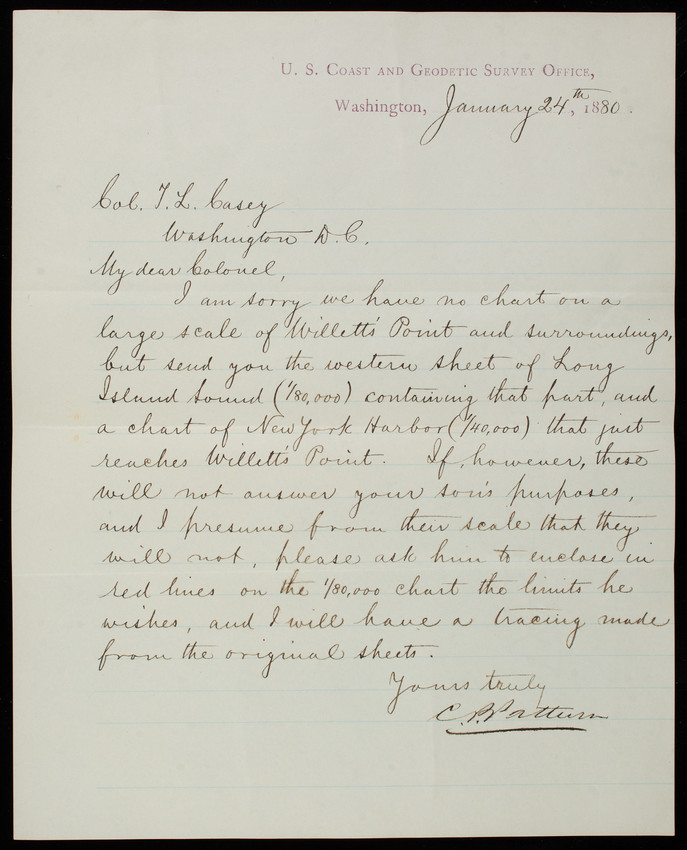 U. S. Coast and Geodetic Survey Office,
Washington, January 24th, 1880.
Col. T. L. Casey
Washington D. C.
My dear Colonel,
I am sorry we have no chart on a
large scale of Willett's Point and surroundings,
but send you the western sheet of Long
Island Sound (1/80,000) containing that part, and
a chart of New York Harbor (1/40,000) that just
reaches Willett's Point. If, however, these
will not answer your son's purposes,
and I presume from their scale that they
will not, please ask him to enclose in
red lines on the 1/80,000 chart the limits he
wishes, and I will have a tracing made
from the original sheets.
Yours truly
C. P. Patterson